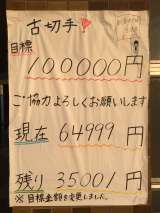 古切手
目標
100000円
ご協力よろしくお願いします
現在 64999円
残り 35001円
※目標金額を変更しました。